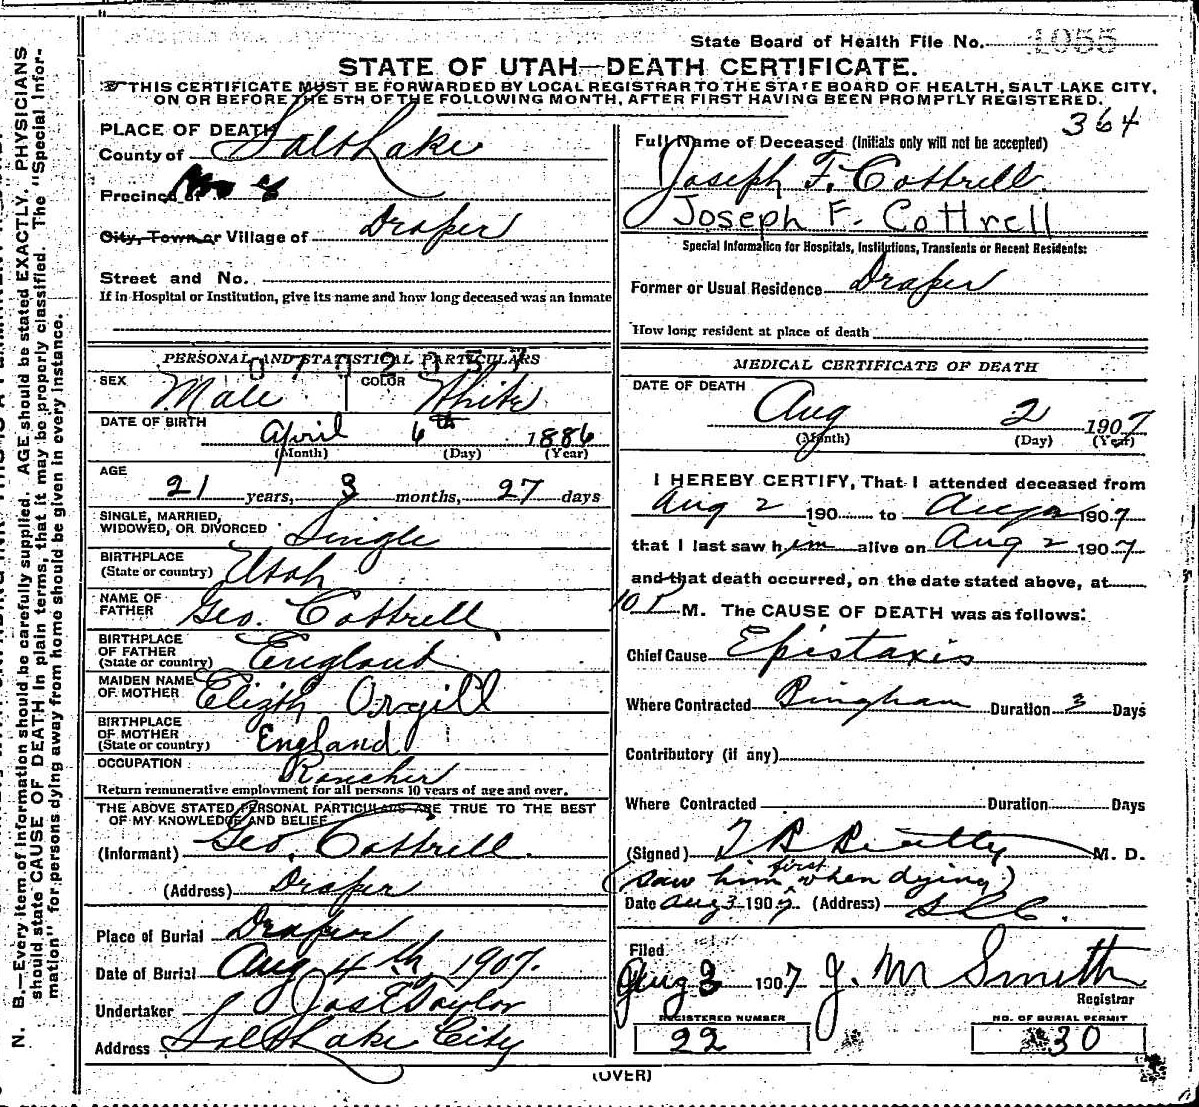 State Board of Health File No. 1055
STATE OF UTAH—DEATH CERTIFICATE.
THIS CERTIFICATE MUST BE FORWARDED BY LOCAL REGISTRAR TO THE STATE BOARD OF HEALTH, SALT LAKE CITY,
ON OR BEFORE THE 5TH OF THE FOLLOWING MONTH, AFTER FIRST HAVING BEEN PROMPTLY REGISTERED.
364
PLACE OF DEATH
County of Salt Lake
Precinct or
City, Town or Village of Draper
Street and No.
If in Hospital or Institution, give its name and how long deceased was an inmate
PERSONAL AND STATISTICAL PARTICULARS
0702037
SEX Male COLOR White
DATE OF BIRTH April 6th 1886
(Month) (Day) (Year)
AGE
21 years, 3 months, 27 days
SINGLE, MARRIED,
WIDOWED, OR DIVORCED Single
BIRTHPLACE
(State or country) Utah
NAME OF
FATHER Geo. Cottrell
BIRTHPLACE
OF FATHER
(State or country) England
MAIDEN NAME
OF MOTHER Elizth Orgill
BIRTHPLACE
OF MOTHER
(State or country) England
OCCUPATION Rancher
Return remunerative employment for all persons 10 years of age and over.
THE ABOVE STATED PERSONAL PARTICULARS ARE TRUE TO THE BEST
OF MY KNOWLEDGE AND BELIEF
(Informant) Geo. Cottrell.
(Address) Draper
Place of Burial Draper
Date of Burial Aug 4th, 1907.
Undertaker Jos E Taylor
Address Salt Lake City
Full Name of Deceased (Initials only will not be accepted)
Joseph F. Cottrell
Joseph F. Cottrell
Special Information for Hospitals, Institutions, Transients or Recent Residents:
Former or Usual Residence Draper
How long resident at place of death
MEDICAL CERTIFICATE OF DEATH
DATE OF DEATH
Aug 2 1907
(Month) (Day) (Year)
I HEREBY CERTIFY, That I attended deceased from
Aug 2 190 to Aug 2 1907
that I last saw him alive on Aug 2 1907
and that death occurred, on the date stated above, at
10 P M. The CAUSE OF DEATH was as follows:
Chief Cause Epistaxis
Where Contracted Bingham Duration 3 Days
Contributory (if any)
Where Contracted Duration Days
(Signed) T B Beatty M. D.
(Saw him first when dying)
Date Aug 3 1907. (Address) SLC.
Filed
Aug 3 1907 J. M Smith
Registrar
REGISTERED NUMBER
22
NO. OF BURIAL PERMIT
30
(OVER)
N. B.—Every item of information should be carefully supplied. AGE should be stated EXACTLY. PHYSICIANS
should state CAUSE OF DEATH in plain terms, that it may be properly classified. The "Special Infor-
mation" for persons dying away from home should be given in every instance.